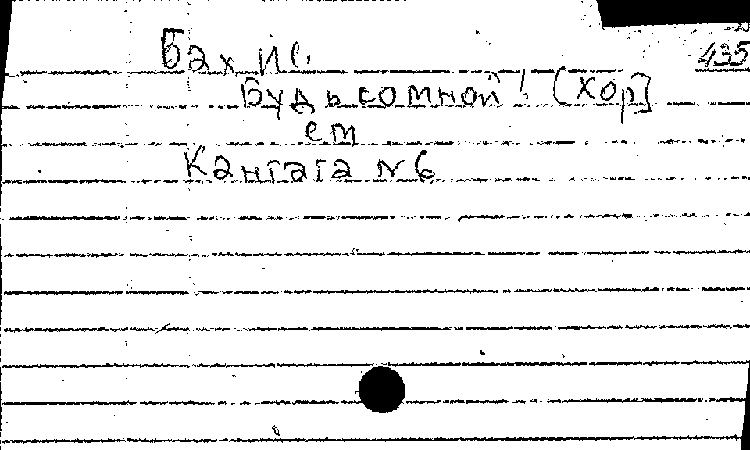 435
Бах ИС.
Будь со мной! (хор)
em
Кантата №6